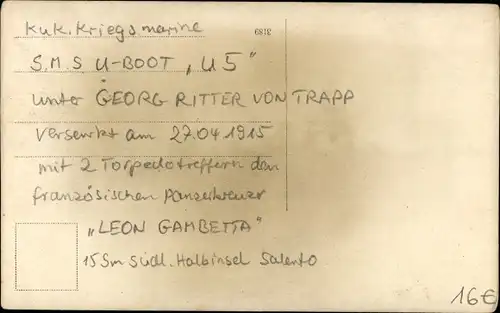 KuK. Kriegsmarine
3189
S.M.S U-BOOT „U5"
unter GEORG RITTER VON TRAPP
versenkt am 27.04 1915
mit 2 Torpedotreffern den
französischen Panzerkreuzer
„LEON GAMBETTA"
15 Sm südl. Halbinsel Salento
16€